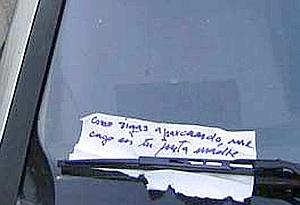 Como sigas aparcando, me
cago en tu puta madre